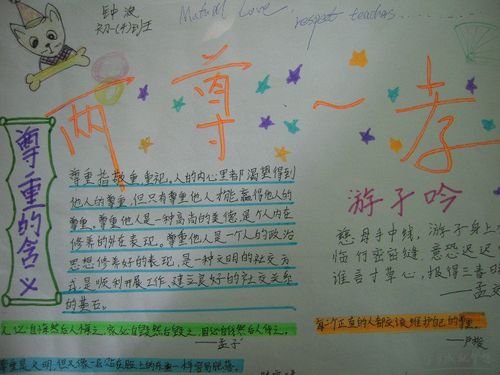 钟波
初一(4)班
Mutual Love, respect teaches......
两尊一孝
尊重的含义
尊重指敬重、重视。人的内心里都渴望得到
他人的尊重,但只有尊重他人才能赢得他人的
尊重。尊重他人是一种高尚的美德,是个人内在
修养的外在表现。尊重他人是一个人的政治
思想修养好的表现,是一种文明的社交方
式,是顺利开展工作、建立良好的社交关系
的基石。
游子吟
慈母手中线,游子身上
临行密密缝,意恐迟迟
谁言寸草心,报得三春
——孟郊
人必自侮然后人侮之,家必自毁然后人毁之,国必自伐然后人伐之。
——孟子
每个正直的人都应该维护自己的尊重。
——卢梭
尊重是文明,但又像一